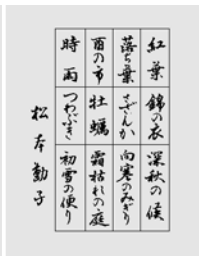 紅葉
錦の衣
深秋の候
落ち葉
さざんか
向寒のみぎり
酉の市
牡蠣
霜枯れの庭
時雨
つわぶき
初雪の便り
松本勤子